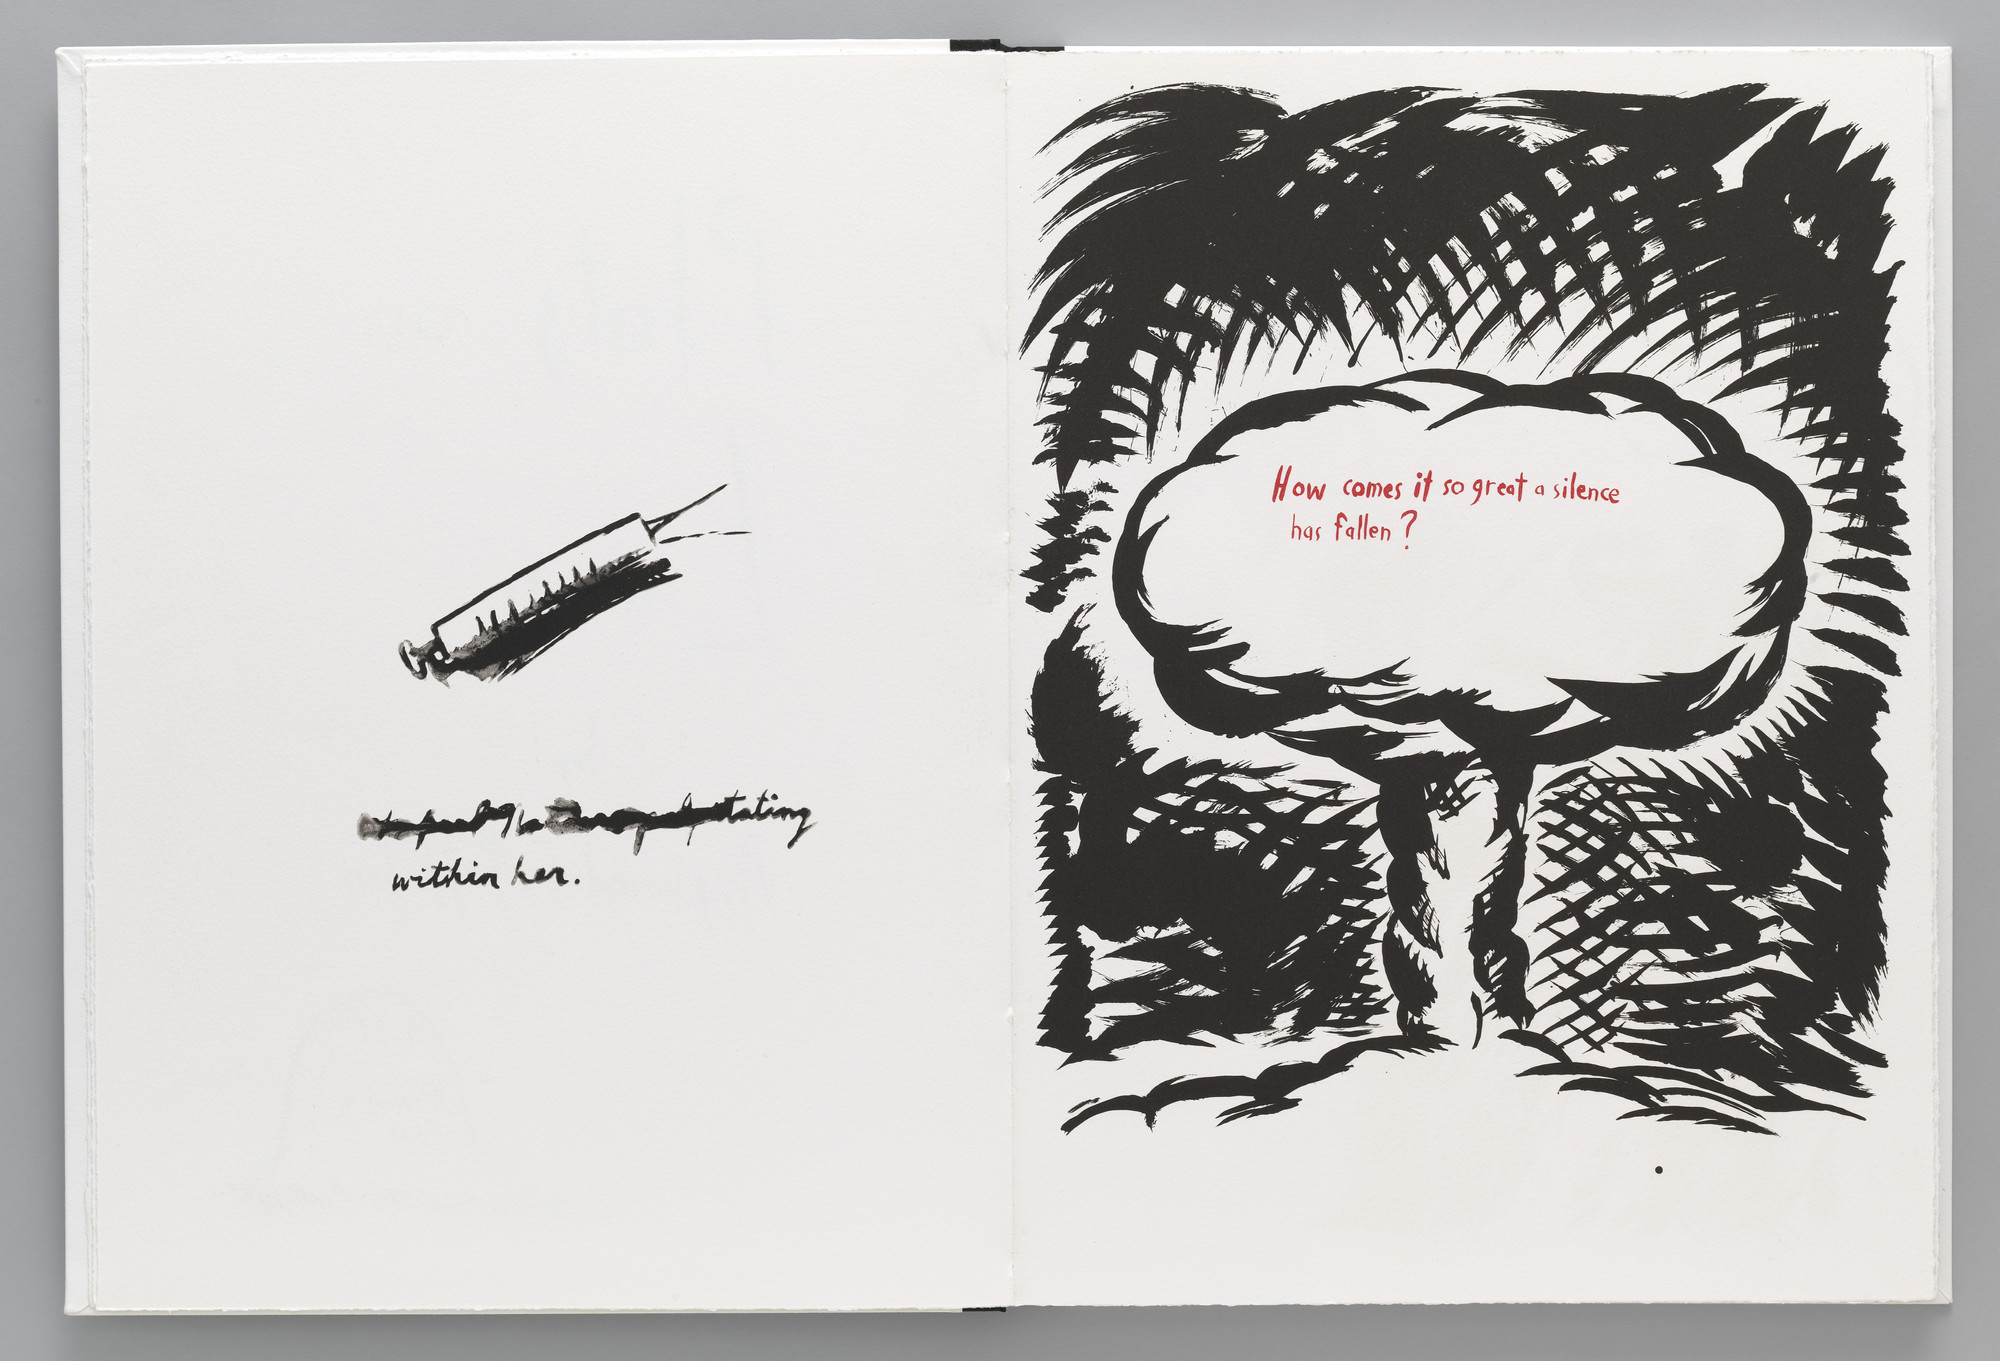 within her.
How comes it so great a silence
has fallen?